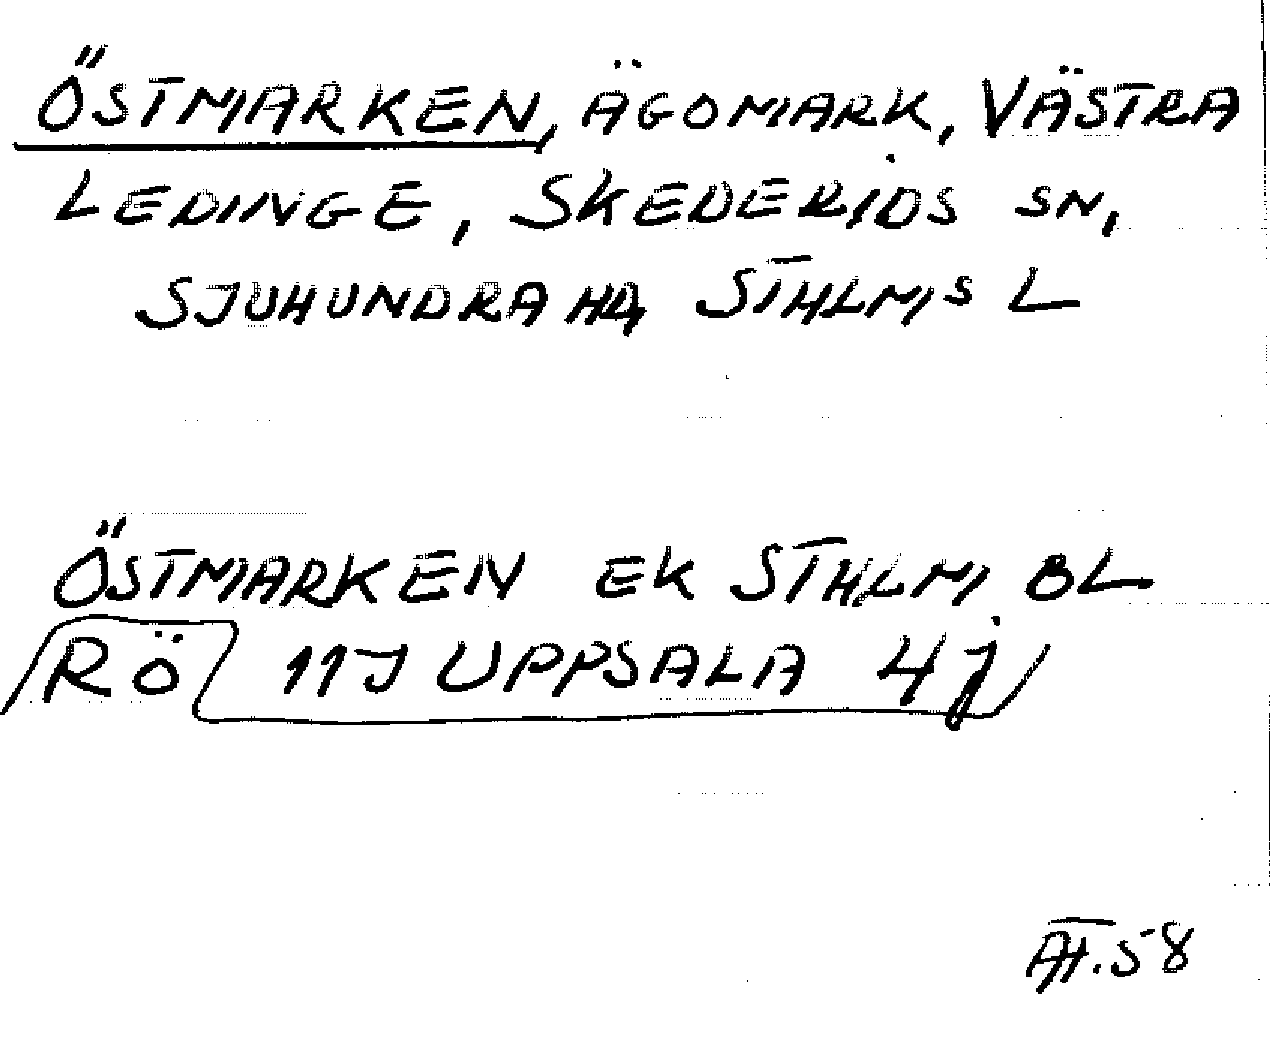 ÖSTMARKEN, ÄGOMARK, VÄSTRA
LEDINGE, SKEDERIDS SN,
SJUHUNDRA HD, STHLMS L
ÖSTMARKEN EK STHLM BL
RÖ 11J UPPSALA 4j
AT.58